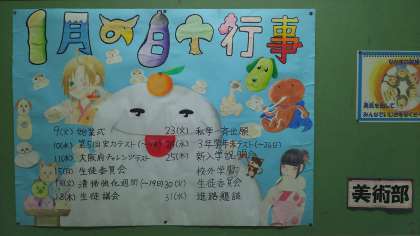 1月の目ナ行事
9(火) 始業式
10(水) 第5回実力テスト(〜
11(木) 大阪府チャレンジテスト
15(月) 生徒委員会
清掃強化週間(〜19日)
18(木) 生徒議会
23(火) 私学一斉出願
24(水) 3年学年末テスト(〜26日)
25(木) 新入学説明会
校外学習
30(火) 生徒委員会
31(水) 進路懇談
美術部